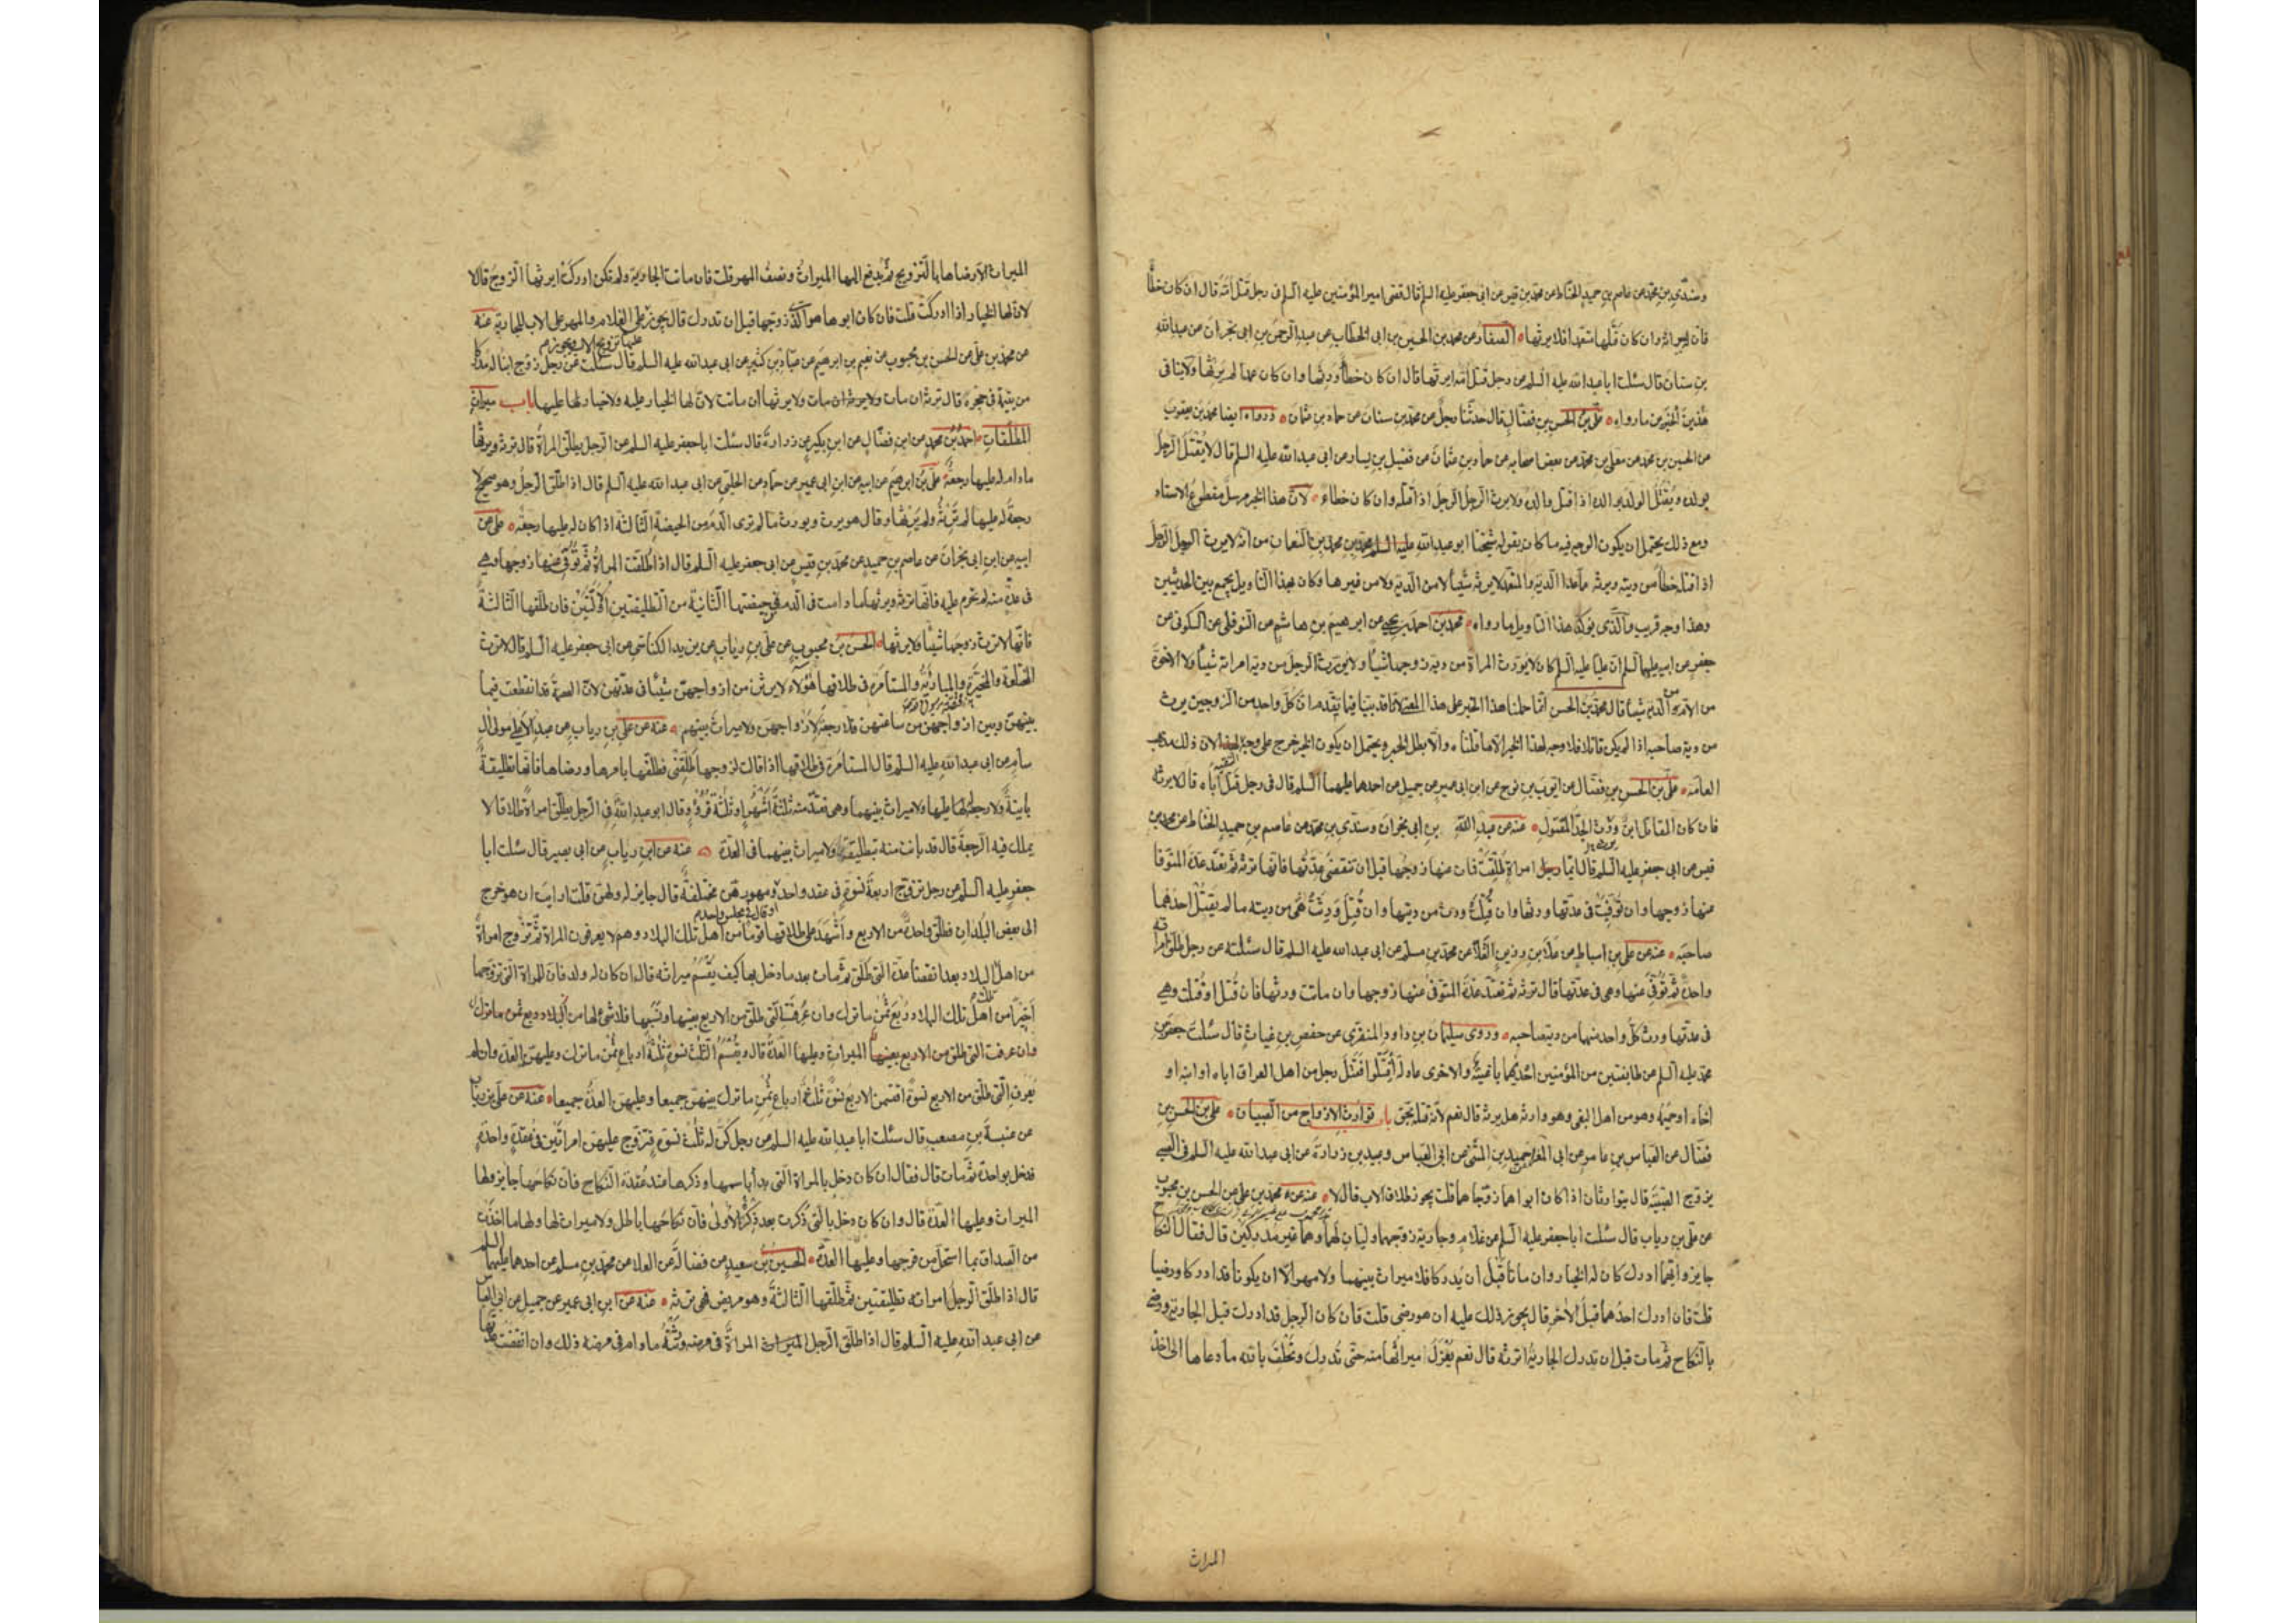 وسندي بن محمد عن عاصم بن حميد الحناط عن محمد بن قيس عن ابي جعفر عليه السلم قال قضى امير المؤمنين عليه السلم في رجل قتل امه قال ان كان خطأ
فان له ميراثه وان كان قتلها متعمدا فلا يرثها الصفار عن محمد بن الحسين بن ابى الخطاب عن عبد الرحمن بن ابى نجران عن عبدالله
بن سنان قال سئلت ابا عبدالله عليه السلم عن رجل قتل امه ايرثها قال ان كان خطأ ورثها وان كان عمدا لم يرثها ولا ينافى
هذين الخبرين ما رواه علي بن الحسن بن فضال قال حدثنا رجل عن محمد بن سنان عن حماد بن عثمان ورواه ايضا محمد بن يعقوب
عن الحسين بن محمد عن معلى بن محمد عن بعض اصحابه عن حماد بن عثمان عن فضيل بن يسار عن ابى عبدالله عليه السلم قال لا يقتل الرجل
بولده ويقتل الولد بوالده اذا قتل والده ولا يرث الرجل الرجل اذا قتله وان كان خطاء لان هذا الخبر مرسل مقطوع الاسناد
ومع ذلك يحتمل ان يكون الوجه فيه ما كان يقوله شيخنا ابو عبدالله محمد بن محمد بن النعمان من انه لا يرث الرجل الرجل
اذا قتله خطأ من ديته ويرثه ما عدا الدية والمتعمد لا يرثه شيئا لا من الدية ولا من غيرها وكان بهذا التأويل يجمع بين الحديثين
وهذا وجه قريب والذى يؤكد هذا التاويل ما رواه محمد بن احمد بن يحيى عن ابرهيم بن هاشم عن النوفلى عن السكونى عن
جعفر عن ابيه عليهما السلم ان عليا عليه السلم كان لا يورث المراة من دية زوجها شيئا ولا يورث الرجل من دية امراته شيئا ولا الاخوة
من الام من الدية شيئا قال محمد بن الحسن انما حملنا هذا الخبر على هذا المعنى لانا قد بينا فيما تقدم ان كل واحد من الزوجين يرث
من دية صاحبه اذا لم يكن قاتلا فلا وجه لهذا الخبر الا ما قلناه والا بطل الخبر ويحتمل ان يكون الخبر خرج على وجه التقية لان ذلك مذهب
العامة علي بن الحسن بن فضال عن ايوب بن نوح عن ابن ابى عمير عن جميل عن احدهما عليهما السلم قال فى رجل قتل اباه قال لا يرثه
فان كان للقاتل ابن ورث الجد المقتول عنه عن عبد الله بن ابى نجران وسندي بن محمد عن عاصم بن حميد الحناط عن محمد بن
قيس عن ابى جعفر عليه السلم قال ايما امراة طلقت فمات عنها زوجها قبل ان تنقضى عدتها فانها ترثه ثم تعتد عدة المتوفا
عنها زوجها وان توفيت فى عدتها ورثها وان قتلت ورث من ديتها وان قتل ورثت هى من ديته ما لم يقتل احدهما
صاحبه عنه عن علي بن اسباط عن علا بن رزين القلا عن محمد بن مسلم عن ابى عبدالله عليه السلم قال سئلته عن رجل طلق امراته
واحدة ثم توفى عنها وهى فى عدتها قال ترثه ثم تعتد عدة المتوفى عنها زوجها وان ماتت ورثها فان قتل او قتلت وهى
فى عدتها ورث كل واحد منهما من دية صاحبه وروى سليمان بن داود المنقري عن حفص بن غياث قال سئلت جعفر بن
محمد عليه السلم عن طايفتين من المؤمنين احديهما باغية والاخرى عادلة اقتتلوا فقتل رجل من اهل العراق اباه او ابنه او
اخاه او حميمه وهو من اهل البغى وهو وارثه هل يرثه قال نعم لانه قتله بحق باب توارث الازواج من الصبيان علي بن الحسن بن
فضال عن العباس بن عامر عن ابى المغرا حميد بن المثنى عن ابى العباس وعبيد بن زرارة عن ابى عبدالله عليه السلم فى الصبى
يزوج الصبية قال يتوارثان اذا كان ابواهما زوجاهما قلت يجوز طلاق الاب قال لا عنه عن محمد بن علي عن الحسن بن محبوب
عن علي بن رياب قال سئلت ابا جعفر عليه السلم عن غلام وجارية زوجهما وليان لهما وهما غير مدركين قال فقال النكاح
جايز وايهما ادرك كان له الخيار وان ماتا قبل ان يدركا فلا ميراث بينهما ولا مهر الا ان يكونا قد ادركا ورضيا
قلت فان ادرك احدهما قبل الاخر قال يجوز ذلك عليه ان هو رضى قلت فان كان الرجل قد ادرك قبل الجارية ورضى
بالنكاح ثم مات قبل ان تدرك الجارية اترثه قال نعم يعزل ميراثها منه حتى تدرك وتحلف بالله ما دعاها الى اخذ
الميراث
الميراث الا رضاها بالتزويج ثم يدفع اليها الميراث ونصف المهر قلت فان ماتت الجارية ولم تكن ادركت ايرثها الزوج قال لا
لان لها الخيار اذا ادركت قلت فان كان ابوها هو الذي زوجها قبل ان تدرك قال يجوز على الغلام والمهر على الاب للجارية عنه
عليها تزويج الاب ويجوز
عن محمد بن علي عن الحسن بن محبوب عن نعيم بن ابرهيم عن عباد بن كثير عن ابى عبدالله عليه السلم قال سئلت عن رجل زوج ابنا له مدركا
من يتيمة فى حجره قال ترثه ان مات ولا يرثها ان ماتت لان لها الخيار عليه ولا خيار له عليها باب ميراث
المطلقات احمد بن محمد عن ابن فضال عن ابن بكير عن زرارة قال سئلت ابا جعفر عليه السلم عن الرجل يطلق المراة قال ترثه ويرثها
ما دام له عليها رجعة علي بن ابرهيم عن ابيه عن ابن ابى عمير عن حماد عن الحلبي عن ابى عبدالله عليه السلم قال اذا طلق الرجل وهو صحيح لا
رجعة له عليها لم ترثه ولم يرثها وقال هو يرث ويورث ما لم ترى الدم من الحيضة الثالثة اذا كان له عليها رجعة علي عن
ابيه عن ابن ابى نجران عن عاصم بن حميد عن محمد بن قيس عن ابى جعفر عليه السلم قال اذا طلقت المراة ثم توفى عنها زوجها وهى
فى عدة منه لم تحرم عليه فانها ترثه ويرثها ما دامت فى الدم من حيضتها الثانية من التطليقتين الاوليين فان طلقها الثالثة
فانها لا ترث زوجها شيئا ولا يرثها الحسن بن محبوب عن علي بن رياب عن يزيد الكناسي عن ابى جعفر عليه السلم قال لا ترث
المختلعة والمخيرة والمبارئة والمستامرة فى طلاقها هؤلاء لا يرثن من ازواجهن شيئا فى عدتهن لان العصمة قد انقطعت فيما
بينهن وبين ازواجهن من ساعتهن فلا رجعة لازواجهن ولا ميراث بينهم عنه عن علي بن رياب عن عبد الاعلى مولى آل
سام عن ابى عبدالله عليه السلم قال المستامرة فى طلاقها اذا قالت لزوجها طلقنى فطلقها بامرها ورضاها فانها تطليقة
باينة ولا رجعة له عليها ولا ميراث بينهما وهى تعتد منه ثلثة اشهر او ثلثة قروء وقال ابو عبدالله فى الرجل يطلق امراة طلاقا لا
يملك فيه الرجعة قال قد بانت منه بتطليقة ولا ميراث بينهما فى العدة عنه عن ابن رياب عن ابى بصير قال سئلت ابا
جعفر عليه السلم عن رجل تزوج اربعة نسوة فى عقد واحدة ومهورهن مختلفة قال جايز له ولهن قلت ارايت ان هو خرج
او قال فى مجلس واحد
الى بعض البلدان فطلق واحدة من الاربع واشهد على طلاقها قوما من اهل تلك البلاد وهم لا يعرفون المراة ثم تزوج امراة
من اهل البلاد بعد انقضاء عدة التى طلق ثم مات بعد ما دخل بها كيف يقسم ميراثه قال ان كان له ولد فان للمراة التى تزوجها
اخيرا من اهل تلك البلاد ربع ثمن ما ترك وان عرفت التى طلق من الاربع بعينها ونسبها فلا شئ لها من
وان عرفت التى طلق من الاربع بعينها الميراث وعليها العدة قال ويقسم الثلث نسوة ثلثة ارباع ثمن ما ترك وعليهن العدة وان لم
يعرف التى طلق من الاربع نسوة اقتسمن الاربع نسوة ثلثة ارباع ثمن ما ترك بينهن جميعا وعليهن العدة جميعا عنه عن علي بن رياب
عن عنبسة بن مصعب قال سئلت ابا عبدالله عليه السلم عن رجل كن له ثلث نسوة فتزوج عليهن امراتين فى عقدة واحدة
فدخل بواحدة ثم مات قال فقال ان كان دخل بالمراة التى بدأ باسمها وذكرها عند عقدة النكاح فان نكاحها جايز ولها
الميراث وعليها العدة قال وان كان دخل بالتى ذكرت بعد ذكر الاولى فان نكاحها باطل ولا ميراث لها ولها ما اخذت
من الصداق بما استحل من فرجها وعليها العدة الحسين بن سعيد عن فضالة عن العلا عن محمد بن مسلم عن احدهما عليهما السلم
قال اذا طلق الرجل امراته تطليقتين ثم طلقها الثالثة وهو مريض فهى ترثه عنه عن ابن ابى عمير عن جميل عن ابى العباس
عن ابى عبدالله عليه السلم قال اذا طلق الرجل المراة فى مرضه ورثته ما دام فى مرضه ذلك وان انقضت عدتها